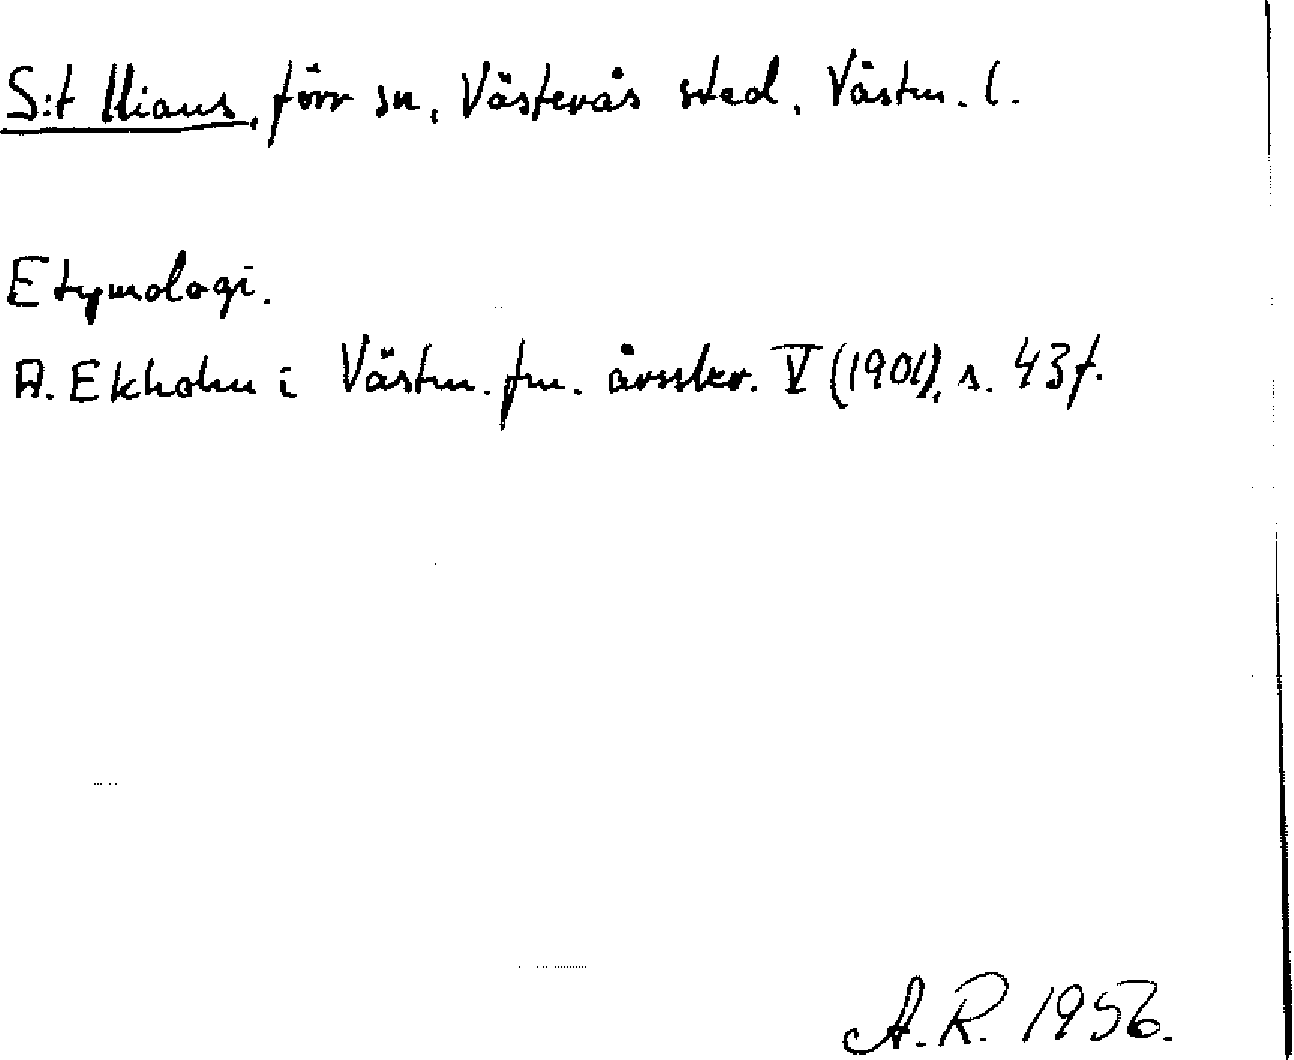 S:t Ilians, förr sn, Västerås stad, Västm. l.
Etymologi.
A. Ekholm i Västm. fm. årsskr. V (1901), s. 43 f.
A. R. 1956.